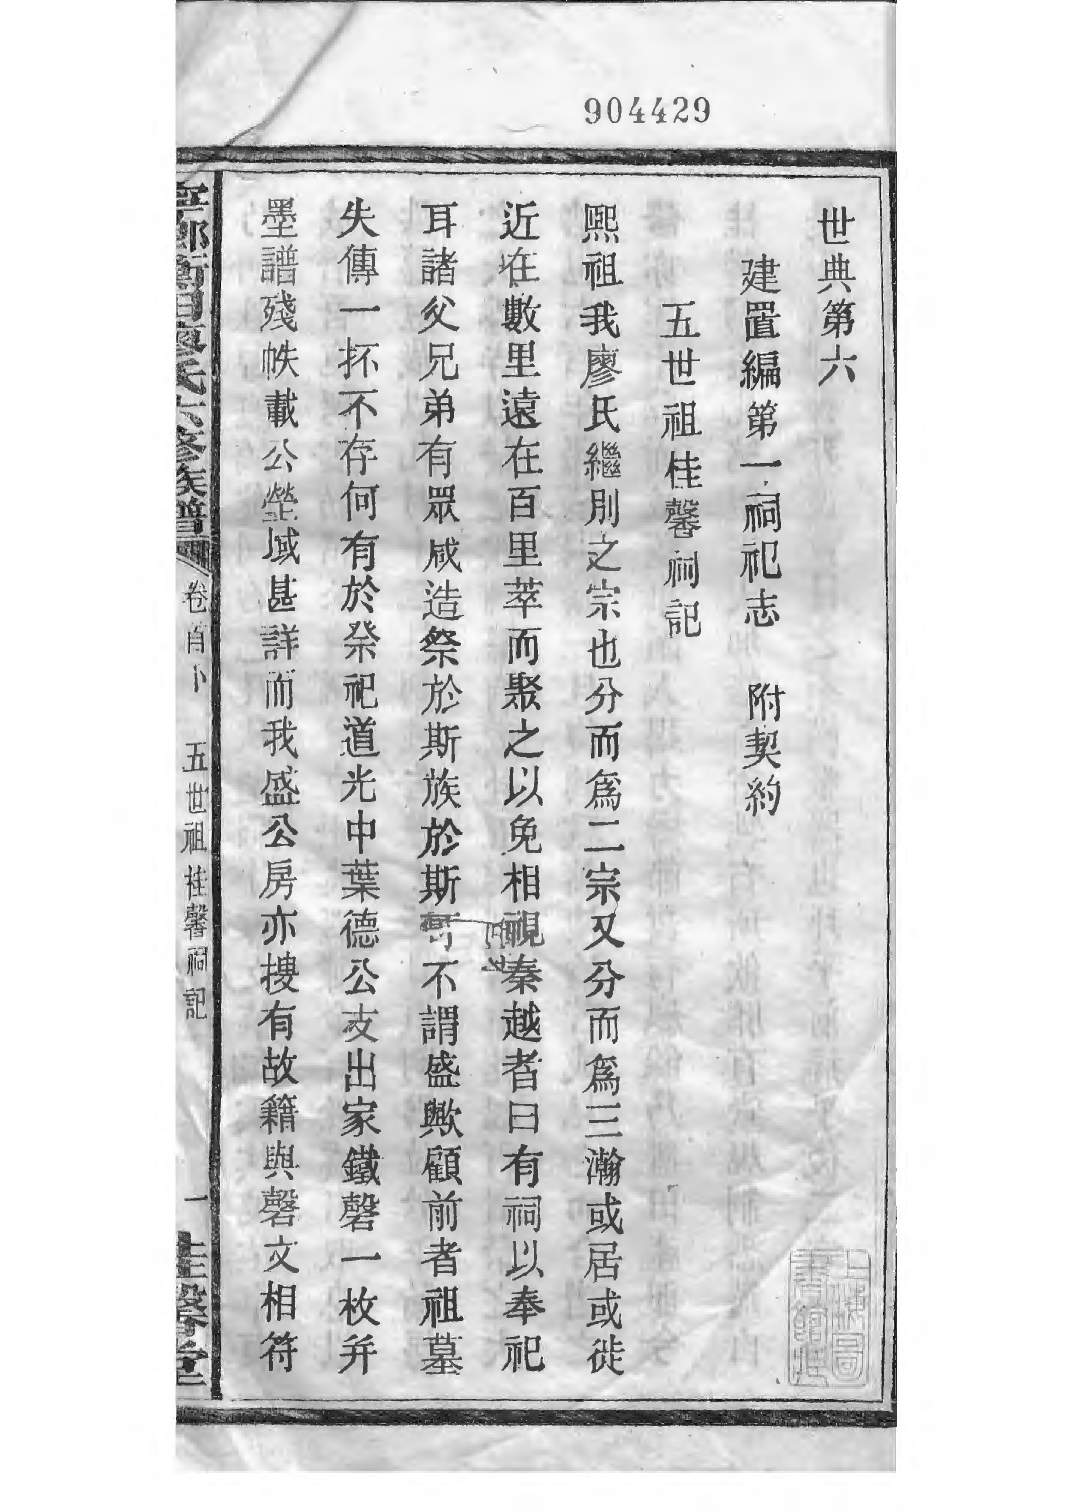 904429
世典第六
建置編第一祠祀志　附契約
五世祖桂馨祠記
熙祖我廖氏繼別之宗也分而爲二宗又分而爲三瀚或居或徙
近在數里遠在百里萃而聚之以免相視秦越者曰有祠以奉祀
耳諸父兄弟有眾咸造祭於斯族於斯可不謂盛歟顧前者祖墓
失傳一抔不存何有於祭祀道光中葉德公支出家鐵磬一枚并
墨譜殘帙載公塋域甚詳而我盛公房亦摟有故籍與磬文相符
廖氏六修族譜
卷首
五世祖桂馨祠記
一
桂馨堂
上海圖
書館藏